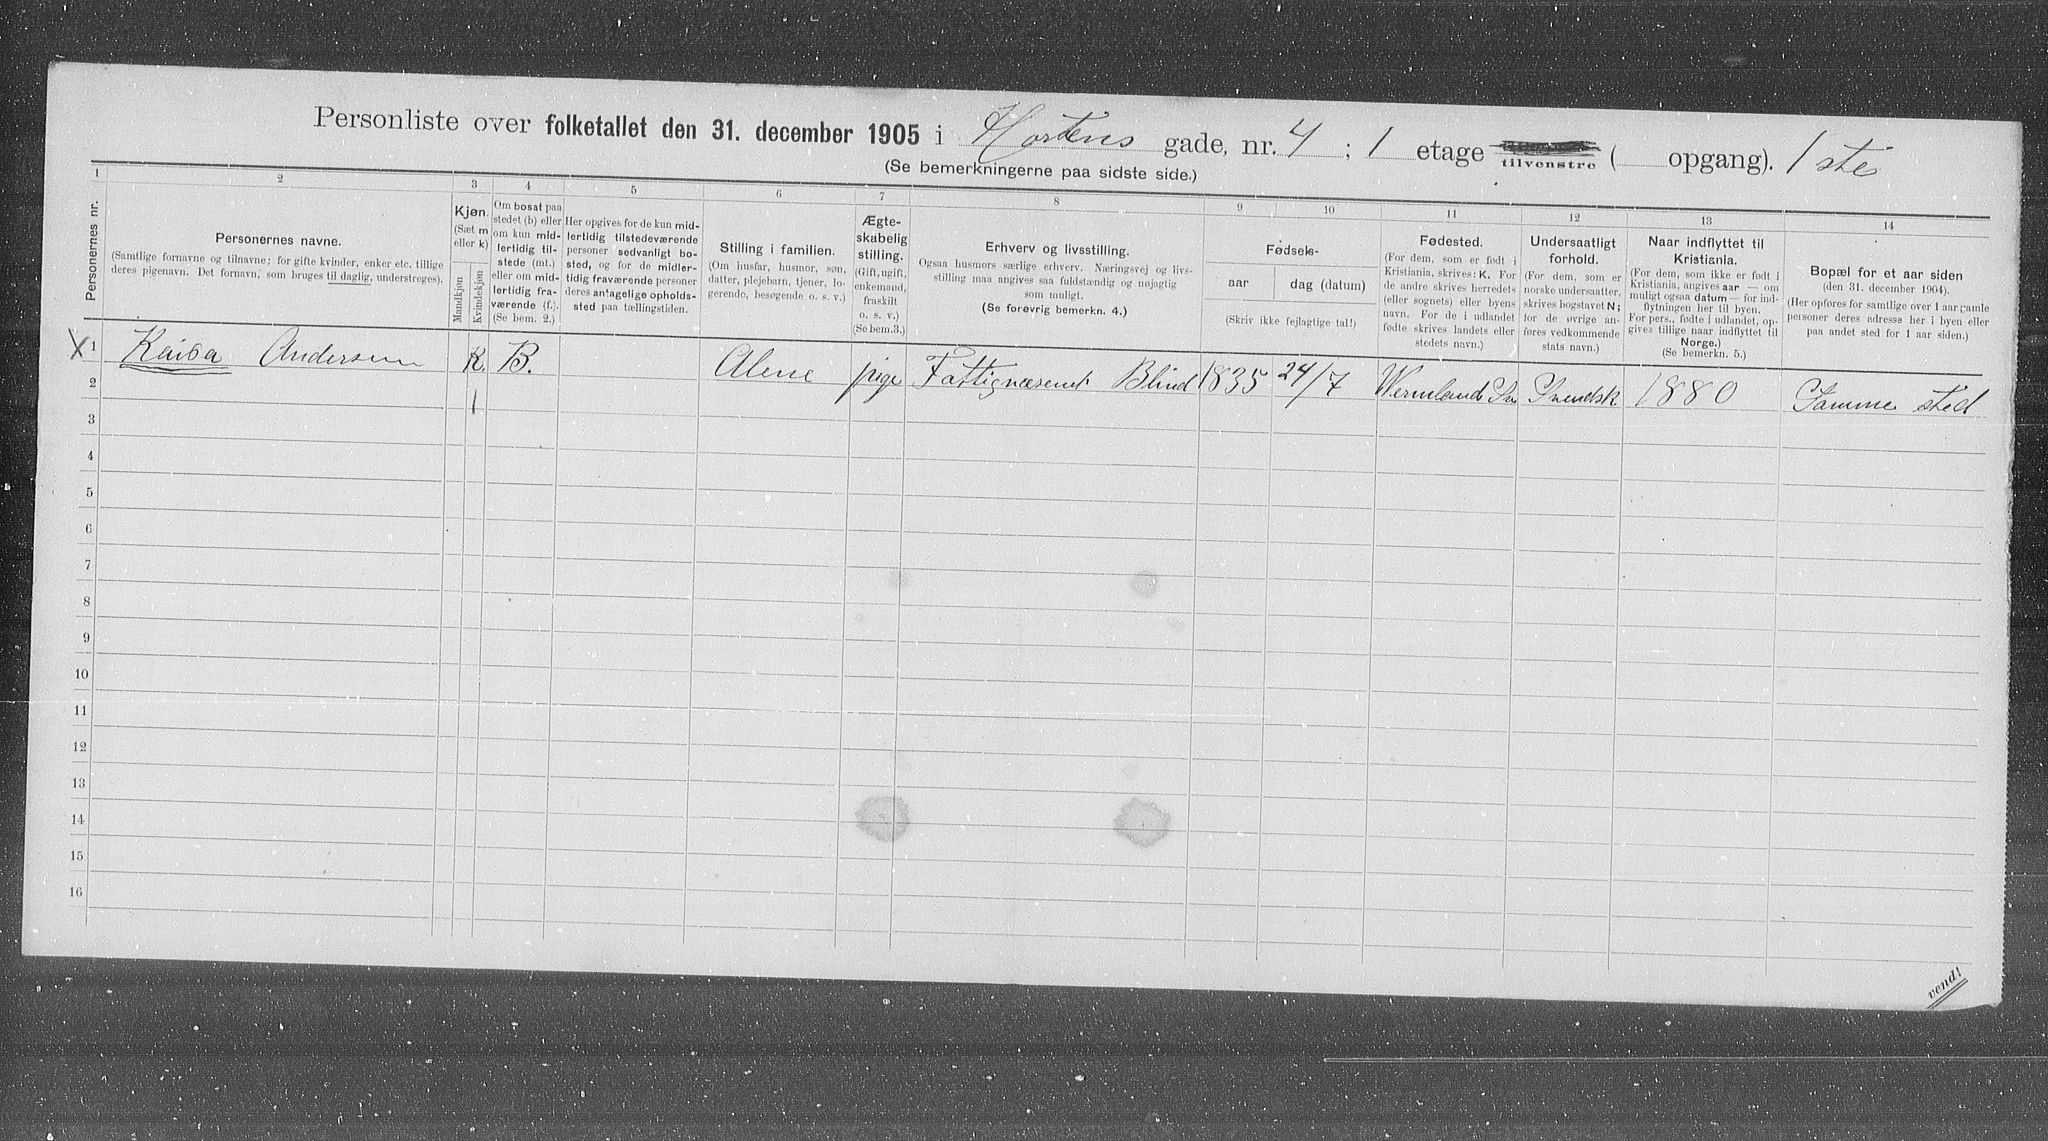 Personliste over folketallet den 31. december 1905 i Hortens gade, nr. 4 ; 1 etage tilvenstre ( opgang). 1ste
(Se bemerkningerne paa sidste side.)
1 2 3 4 5 6 7 8 9 10 11 12 13 14
Personernes nr.
Personernes navne.
(Samtlige fornavne og tilnavne; for gifte kvinder, enker etc. tillige
deres pigenavn. Det fornavn, som bruges til daglig, understreges).
Kjøn.
(Sæt m
eller k)
Mandkjøn
Kvindekjøn
Om bosat paa
stedet (b) eller
om kun mid-
lertidig til-
stede (mt.)
eller om mid-
lertidig fra-
værende (f.).
(Se bem. 2.)
Her opgives for de kun mid-
lertidig tilstedeværende
personer sedvanligt bo-
sted, og for de midler-
tidig fraværende personer
deres antagelige opholds-
sted paa tællingstiden.
Stilling i familien.
(Om husfar, husmor, søn,
datter, plejebarn, tjener, lo-
gerende, besøgende o. s. v.)
Ægte-
skabelig
stilling.
(Gift, ugift,
enkemand,
fraskilt
o. s. v.)
(Se bem. 3.)
Erhverv og livsstilling.
Ogsaa husmors særlige erhverv. Næringsvej og livs-
stilling maa angives saa fuldstændig og nøjagtig
som muligt.
(Se forøvrig bemerkn. 4.)
Fødsels-
aar dag (datum)
(Skriv ikke fejlagtige tal!)
Fødested.
(For dem, som er født i
Kristiania, skrives: K. For
de andre skrives herredets
(eller sognets) eller byens
navn. For de i udlandet
fødte skrives landets eller
stedets navn.)
Undersaatligt
forhold.
(For dem, som er
norske undersaatter,
skrives bogstavet N;
for de øvrige an-
føres vedkommende
stats navn.)
Naar indflyttet til
Kristiania.
(For dem, som ikke er født i
Kristiania, angives aar — om
muligt ogsaa datum — for ind-
flytningen her til byen.
For pers., fødte i udlandet, op-
gives tillige naar indflyttet til
Norge.)
(Se bemerkn. 5.)
Bopæl for et aar siden
(den 31. december 1904).
(Her opføres for samtlige over 1 aar gamle
personer deres adresse her i byen eller
paa andet sted for 1 aar siden.)
X 1 Kaisa Andersen K. B. Alene pige Fattignæsent Blind 1835 24/7 Wermland Sv Svendsk 1880 Samme sted
2 1
3
4
5
6
7
8
9
10
11
12
13
14
15
16
vend!